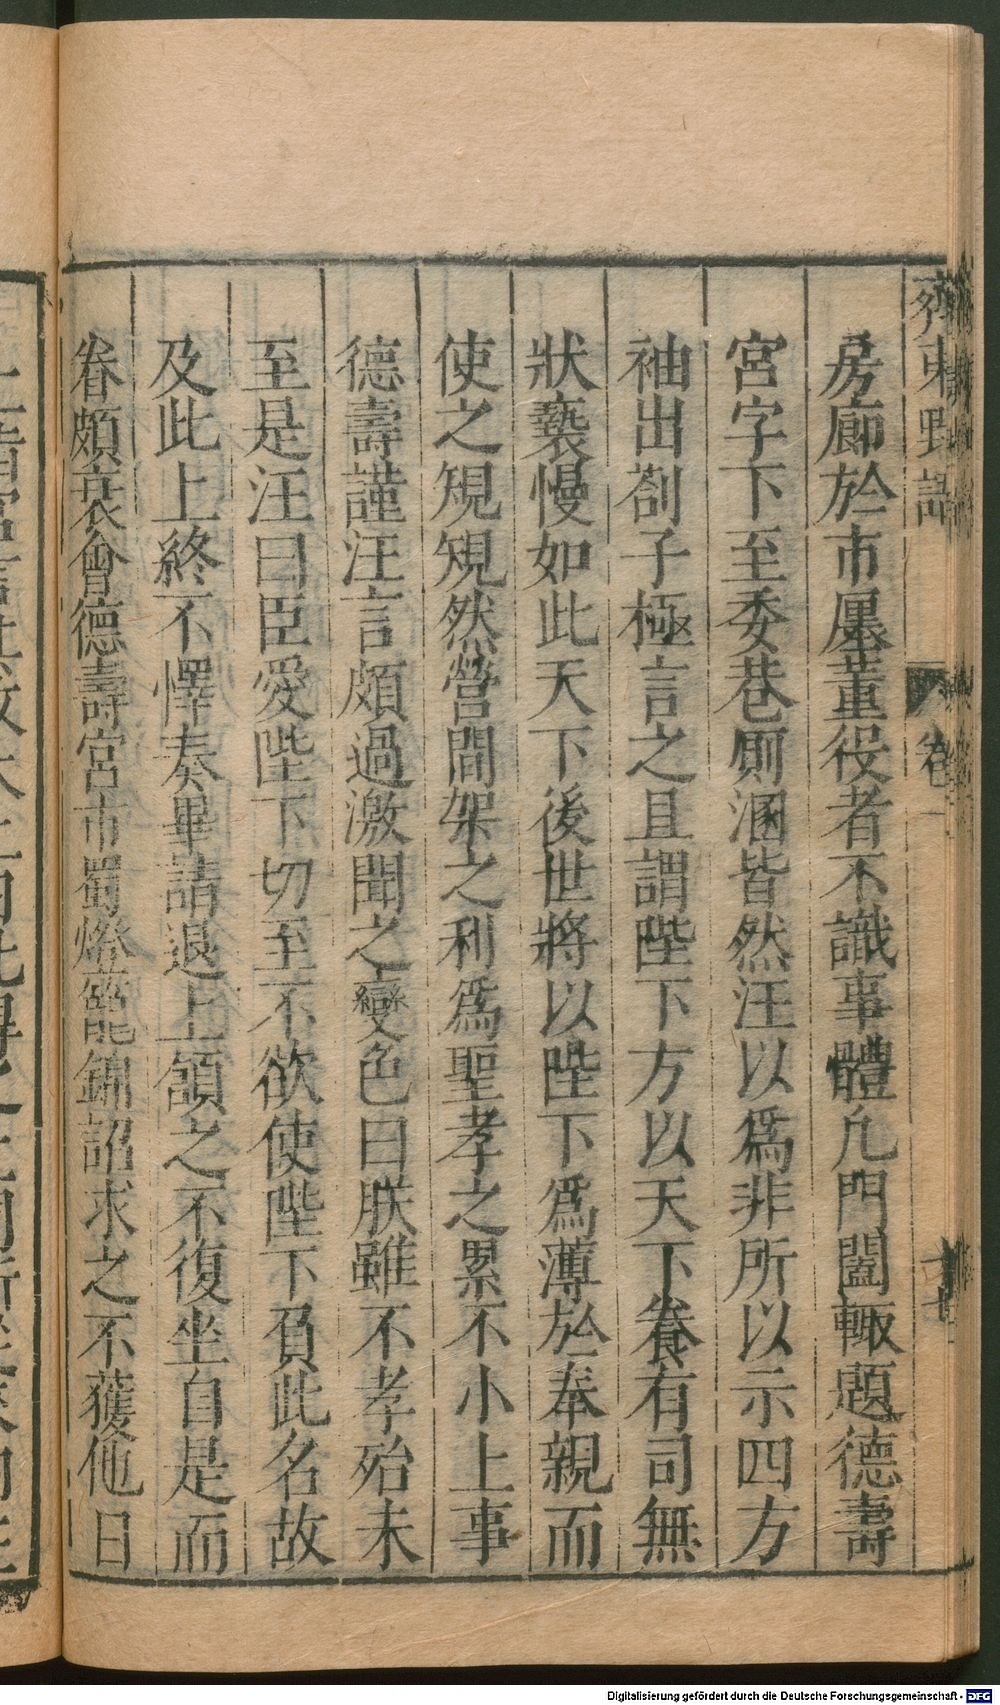 齊東野語
卷一
十七
房廊於市㕓董役者不識事體凢門闔輙題德壽
宮字下至委巷厠溷皆然汪以爲非所以示四方
袖出劄子極言之且謂陛下方以天下養有司無
狀䙝慢如此天下後世將以陛下爲薄於奉親而
使之規規然營間架之利爲聖孝之累不小上事
德壽謹汪言頗過激聞之變色曰朕雖不孝殆未
至是汪曰臣愛陛下切至不欲使陛下負此名故
及此上終不懌奏畢請退上頷之不復坐自是而
眷頗衰會德壽宮市蜀燈籠錦詔求之不獲他日
Digitalisierung gefördert durch die Deutsche Forschungsgemeinschaft - DFG